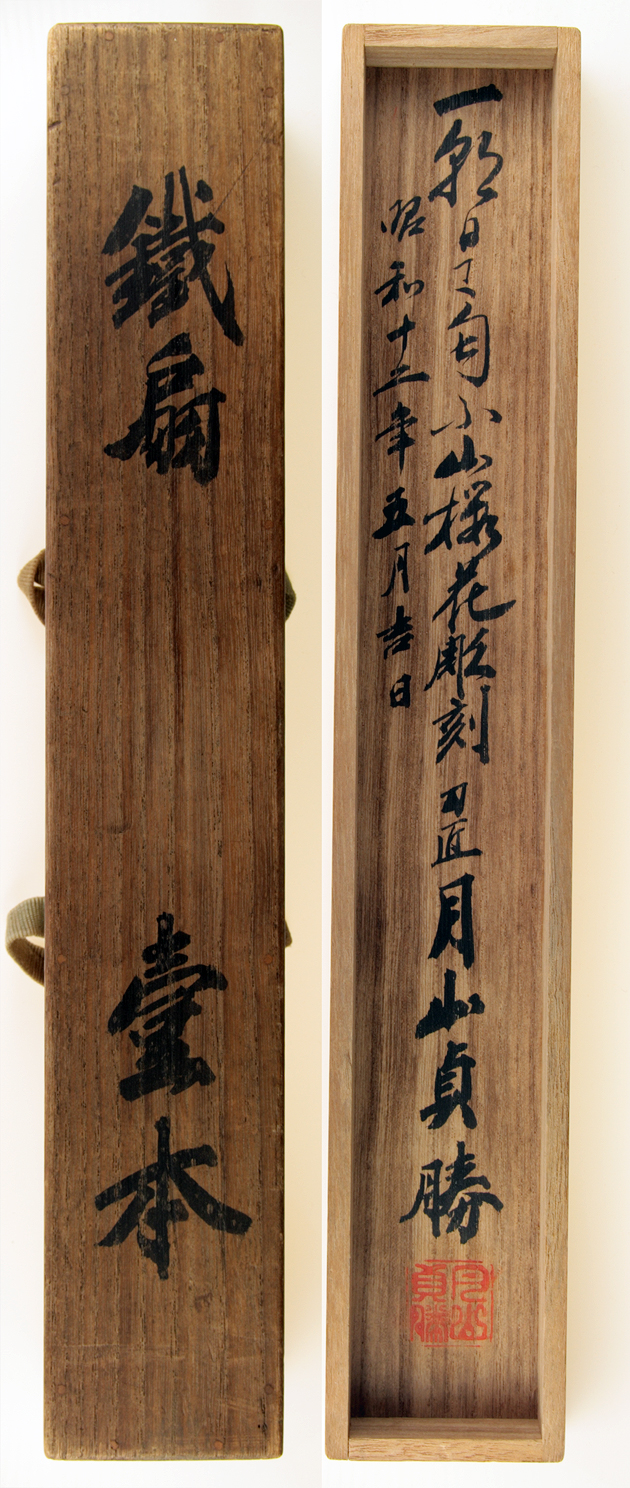 鐵扇 壹本
一朝日に匂ふ山櫻花彫刻 刀匠 月山貞勝
昭和十二年五月吉日
月山貞勝